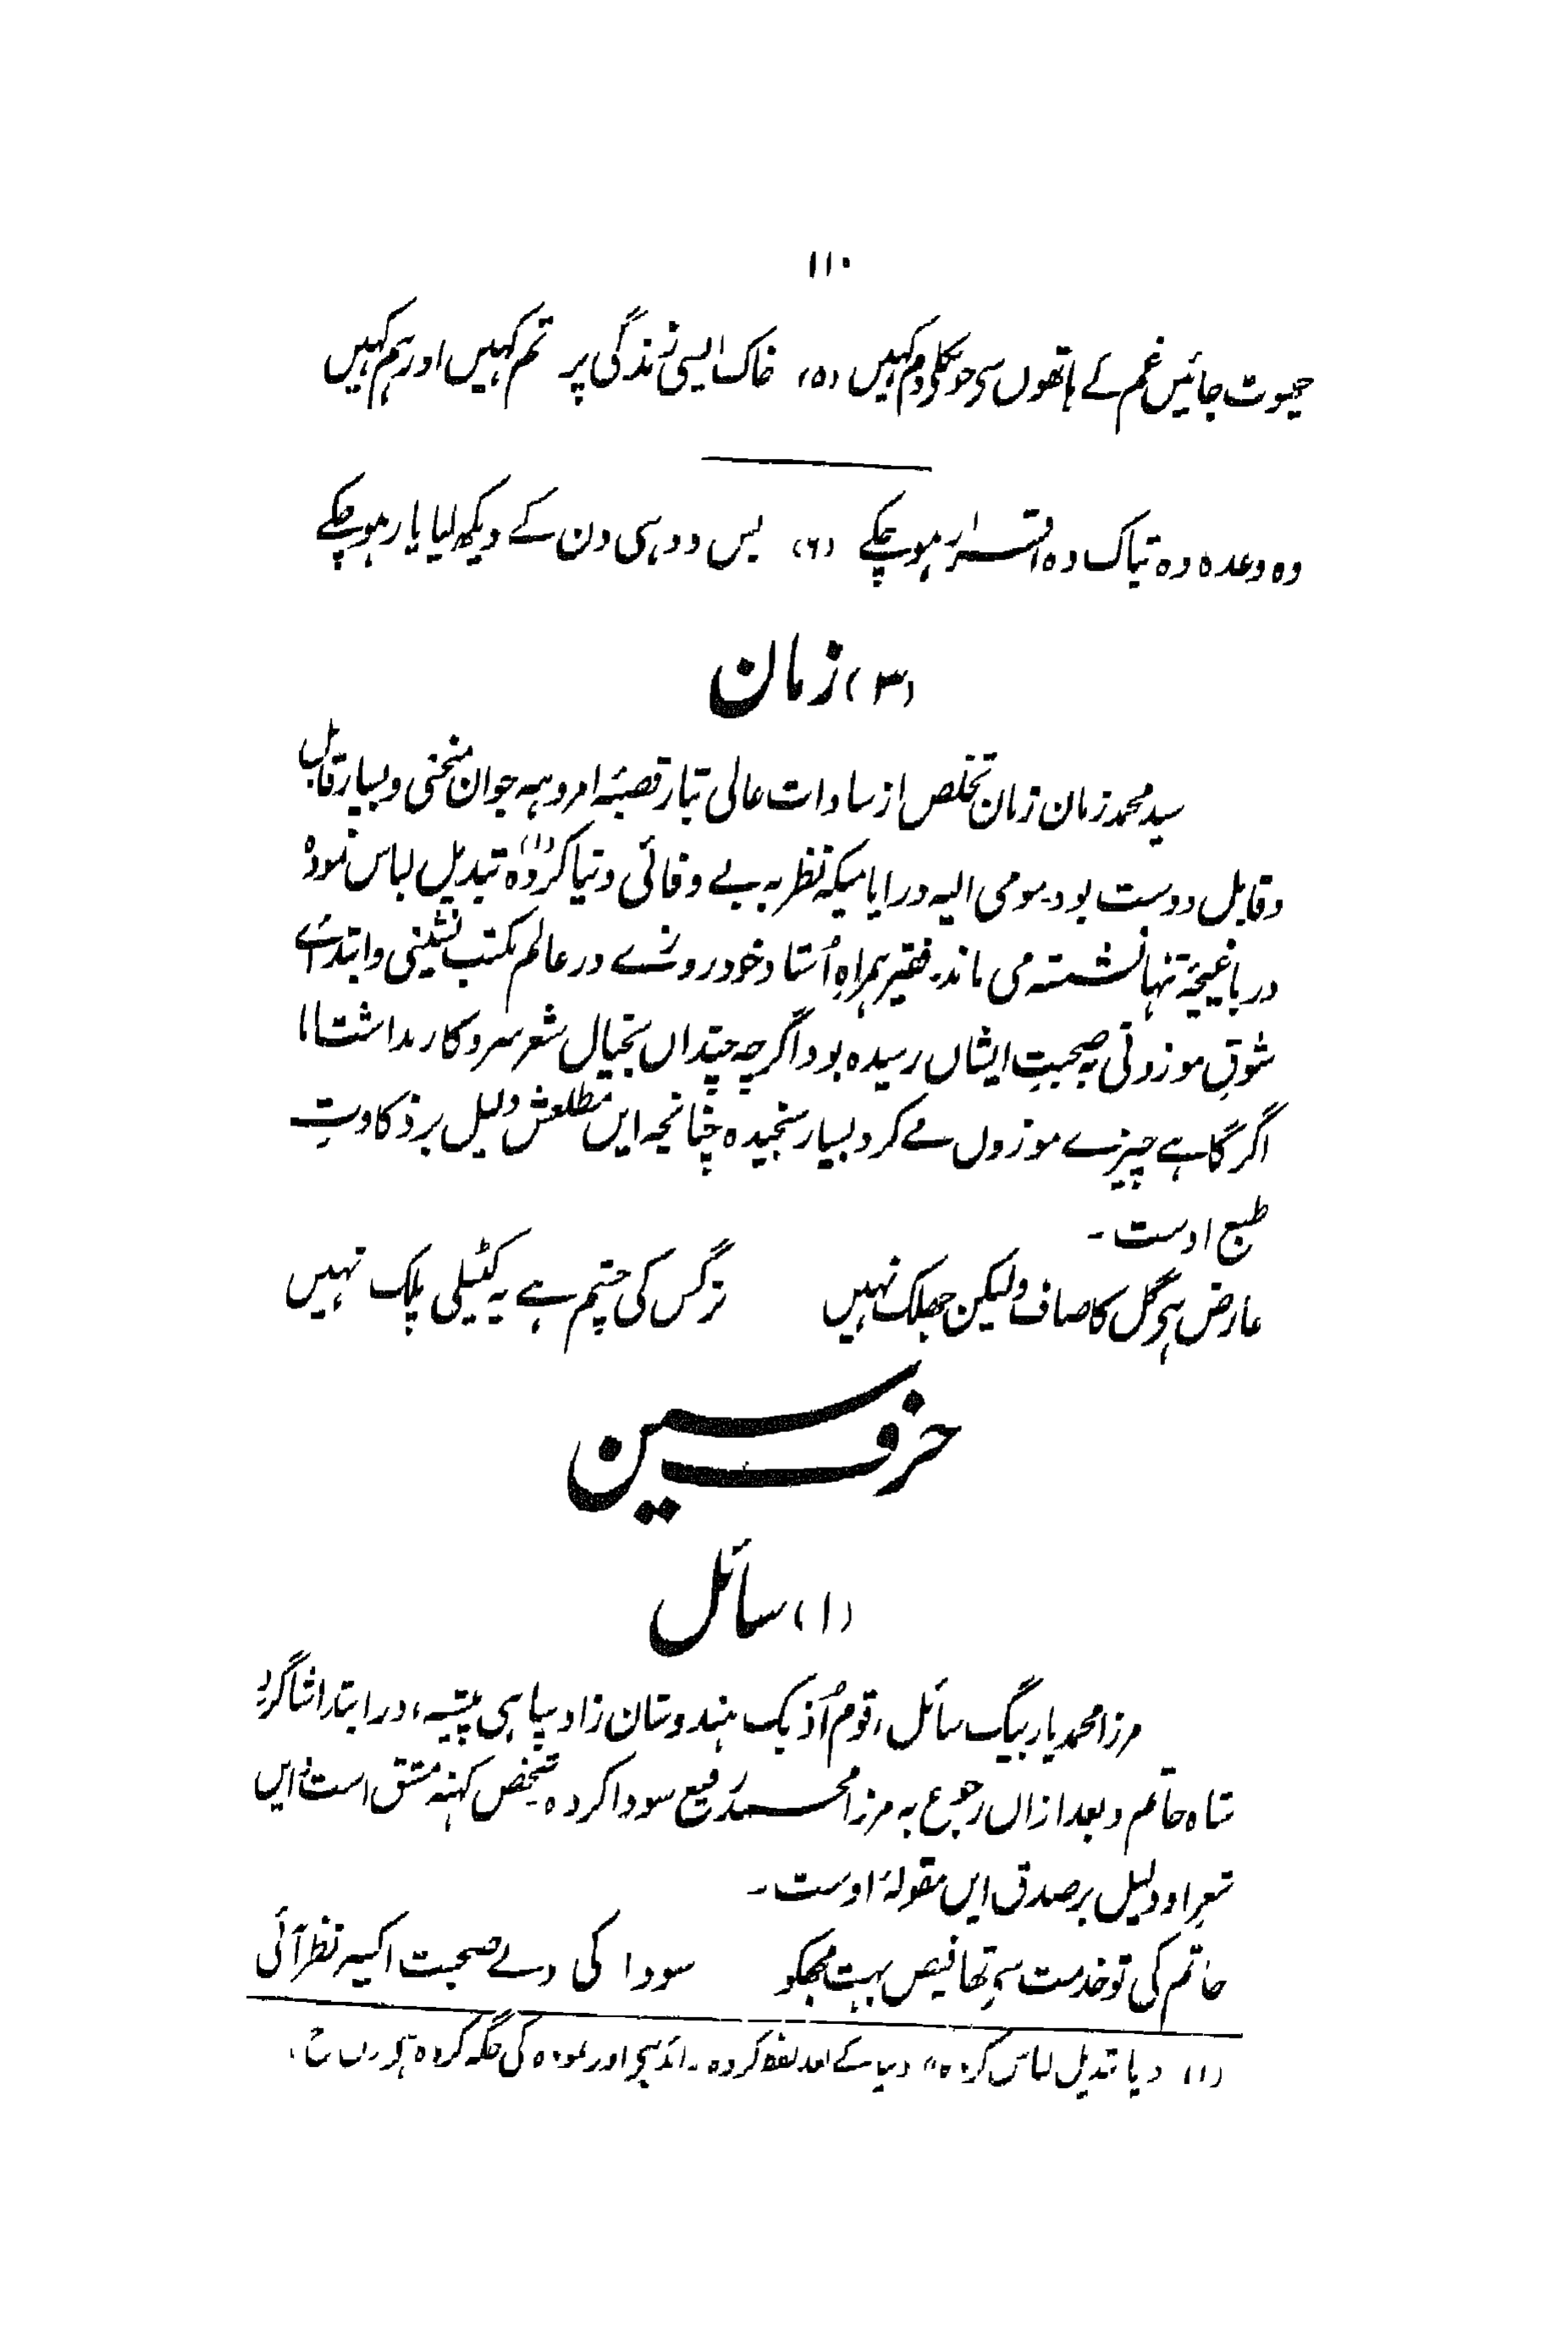 ۱۱۰
چھوٹ جائیں غم کے ہاتھوں سی جو نکلے دم کہیں (۵) خاک ایسی زندگی پر تم کہیں اور ہم کہیں
وہ وعدہ وہ تپاک وہ اقرار ہو چکے (۶) بس دو ہی دن کے دیکھ لیا یار ہو چکے
(۳) زمان
سید محمد زمان زمان تخلص از سادات عالی تبار قصبۂ امروہہ جوان منحنی و بسیار قابل
و قابل دوست بود۔ مومی الیہ در ایامیکہ نظر بہ بے وفائی دنیا کردہ(۱) تبدیل لباس نمودہ
در باغیچۂ تنہا نشستہ می ماند۔ فقیر ہمراہِ اُستاد خود روزے در عالم مکتب نشینی و ابتدائے
شوقِ موزونی بہ صحبتِ ایشاں رسیدہ بود اگرچہ چنداں بخیال شعر سروکار نداشت اما
اگر گاہے چیزے موزوں مے کرد بسیار سنجیدہ چنانچہ ایں مطلعش دلیل بر ذکاوتِ
طبع اوست۔
عارض ہی گل کا صاف ولیکن جھلک نہیں نرگس کی چشم ہے یہ کٹیلی پلک نہیں
حرف سین
(۱) سائل
مرزا محمد یار بیگ سائل، قوم اُزبک ہندوستان زا و سپاہی پیشہ، در ابتدا شاگرد
شاہ حاتم و بعد ازاں رجوع بہ مرزا محمد رفیع سودا کردہ شخص کہنہ مشق است ایں
شعر او دلیل بر صدق ایں مقولۂ اوست۔
حاتم کی تو خدمت سی تھا فیض بہت مجھکو سودا کی ولے صحبت اکسیر نظر آئی
(۱) دنیا تبدیل لباس کردہ" دنیا کے بعد لفظ کردہ۔ زائد ہی اور نمودہ کی جگہ کردہ ہی